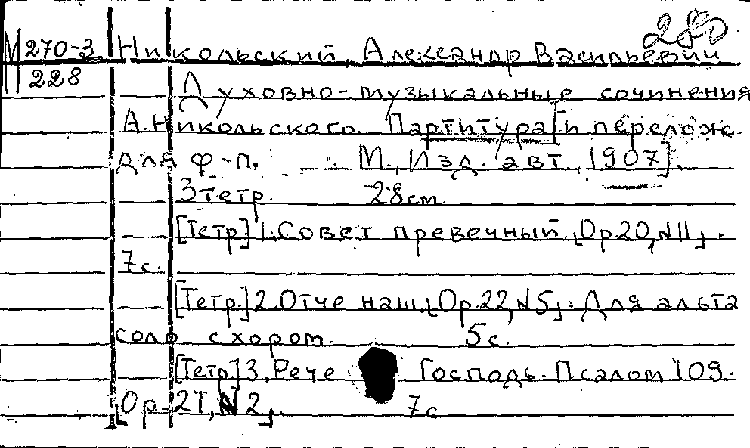 280
М 270-3 Никольский, Александр Васильевич
228
Духовно-музыкальные сочинения
А. Никольского. Партитура [и перелож.
для ф-п. М., Изд. авт., [1907].
3 тетр. 28 см.
[Тетр.] 1. Совет превечный [Ор. 20, №11].
7с.
[Тетр.] 2. Отче наш. [Ор. 22, №5]. Для альта
соло с хором. 5с.
[Тетр.] 3. Рече Господь. Псалом 109.
[Ор. 21, №2]. 7с